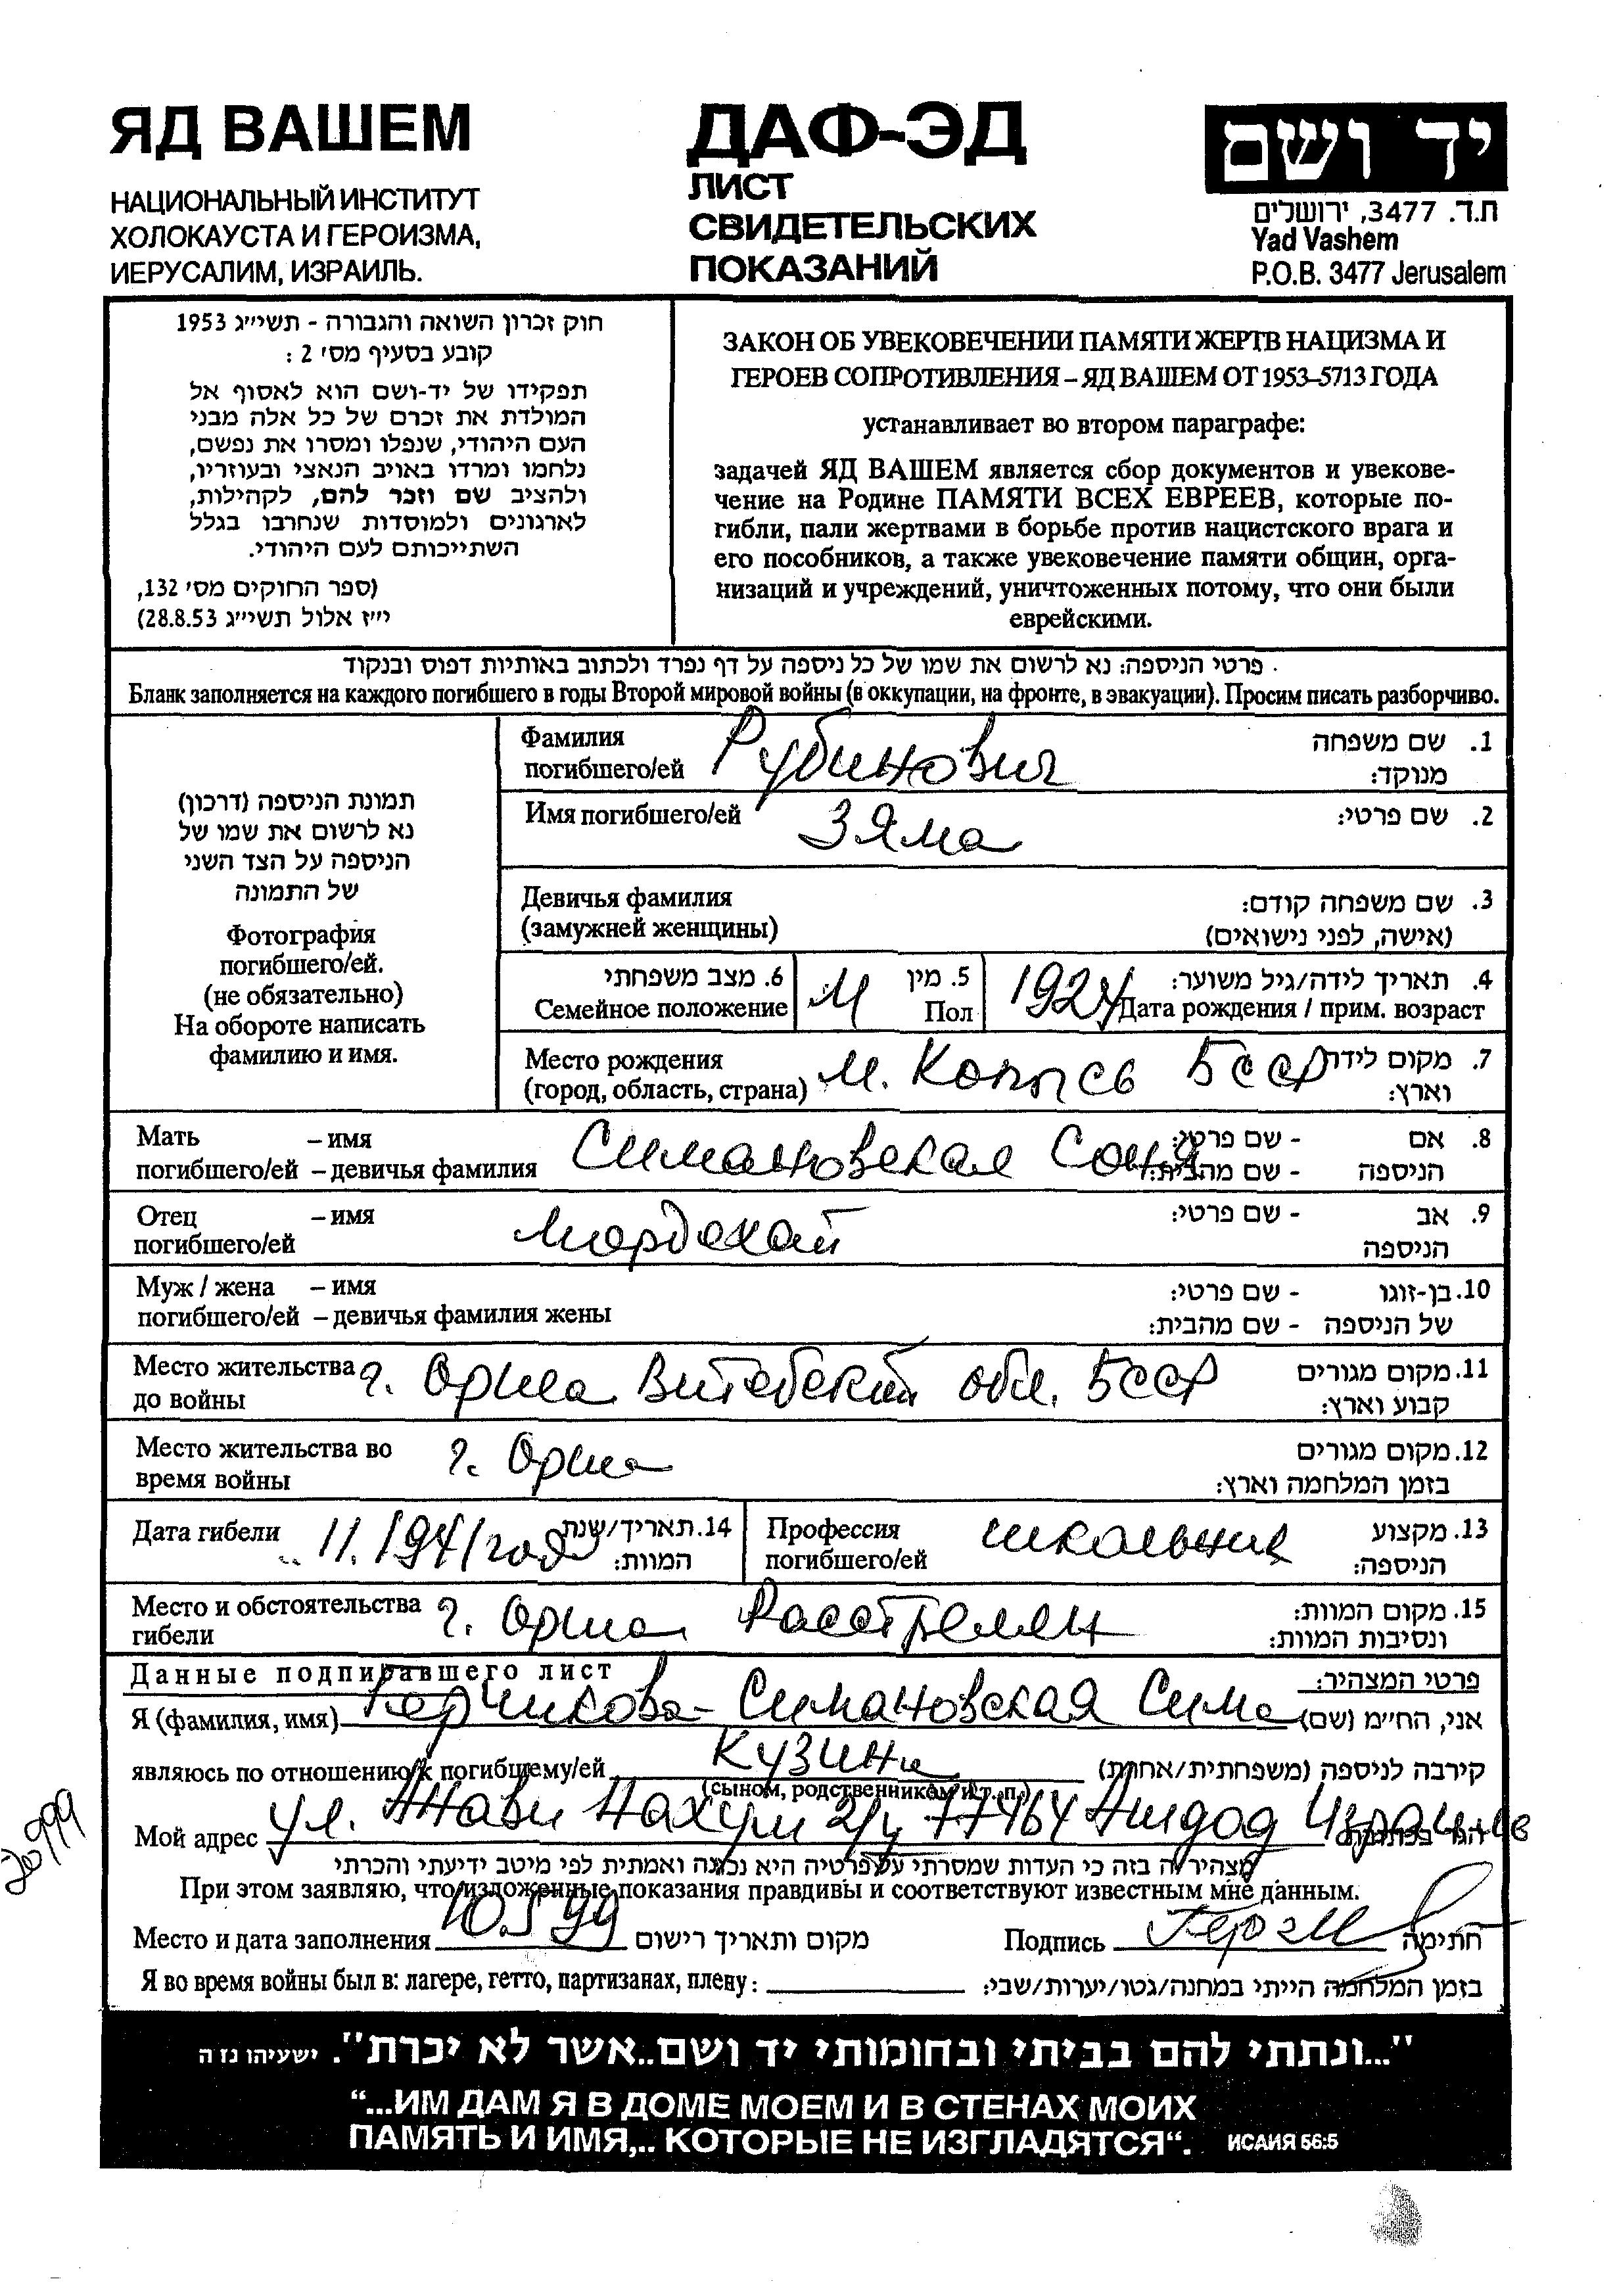 ЯД ВАШЕМ
НАЦИОНАЛЬНЫЙ ИНСТИТУТ
ХОЛОКАУСТА И ГЕРОИЗМА,
ИЕРУСАЛИМ, ИЗРАИЛЬ.
ДАФ-ЭД
ЛИСТ
СВИДЕТЕЛЬСКИХ
ПОКАЗАНИЙ
יד ושם
ת.ד. 3477, ירושלים
Yad Vashem
P.O.B. 3477 Jerusalem
חוק זכרון השואה והגבורה - תשי״ג 1953
קובע בסעיף מס׳ 2 :
תפקידו של יד-ושם הוא לאסוף אל
המולדת את זכרם של כל אלה מבני
העם היהודי, שנפלו ומסרו את נפשם,
נלחמו ומרדו באויב הנאצי ובעוזריו,
ולהציב שם וזכר להם, לקהילות,
לארגונים ולמוסדות שנחרבו בגלל
השתייכותם לעם היהודי.
(ספר החוקים מס׳ 132,
י״ז אלול תשי״ג 28.8.53)
ЗАКОН ОБ УВЕКОВЕЧЕНИИ ПАМЯТИ ЖЕРТВ НАЦИЗМА И
ГЕРОЕВ СОПРОТИВЛЕНИЯ – ЯД ВАШЕМ ОТ 1953–5713 ГОДА
устанавливает во втором параграфе:
задачей ЯД ВАШЕМ является сбор документов и увекове-
чение на Родине ПАМЯТИ ВСЕХ ЕВРЕЕВ, которые по-
гибли, пали жертвами в борьбе против нацистского врага и
его пособников, а также увековечение памяти общин, орга-
низаций и учреждений, уничтоженных потому, что они были
еврейскими.
פרטי הניספה: נא לרשום את שמו של כל ניספה על דף נפרד ולכתוב באותיות דפוס ובנקוד
Бланк заполняется на каждого погибшего в годы Второй мировой войны (в оккупации, на фронте, в эвакуации). Просим писать разборчиво.
תמונת הניספה (דרכון)
נא לרשום את שמו של
הניספה על הצד השני
של התמונה
Фотография
погибшего/ей.
(не обязательно)
На обороте написать
фамилию и имя.
Фамилия Рубинович 1. שם משפחה
погибшего/ей מנוקד:
Имя погибшего/ей Зяма 2. שם פרטי:
Девичья фамилия 3. שם משפחה קודם:
(замужней женщины) (אישה, לפני נישואים)
6. מצב משפחתי 5. מין 4. תאריך לידה/גיל משוער:
Семейное положение М Пол 1924 Дата рождения / прим. возраст
Место рождения 7. מקום לידה
(город, область, страна) м. Копысь БССР וארץ:
Мать – имя 8. אם - שם פרטי:
погибшего/ей – девичья фамилия Симановская Соня הניספה - שם מהבית:
Отец – имя Мордехай 9. אב - שם פרטי:
погибшего/ей הניספה
Муж / жена – имя 10. בן-זוגו - שם פרטי:
погибшего/ей – девичья фамилия жены של הניספה - שם מהבית:
Место жительства г. Орша Витебской обл. БССР 11. מקום מגורים
до войны קבוע וארץ:
Место жительства во г. Орша 12. מקום מגורים
время войны בזמן המלחמה וארץ:
Дата гибели 11.1941 год 14. תאריך/שנת Профессия школьник 13. מקצוע
המוות: погибшего/ей הניספה:
Место и обстоятельства г. Орша Расстрелян 15. מקום המוות:
гибели ונסיבות המוות:
Данные подписавшего лист פרטי המצהיר:
Я (фамилия, имя) Герчикова-Симановская Сима אני, הח״מ (שם)
являюсь по отношению к погибшему/ей кузина קירבה לניספה (משפחתית/אחרת)
(сыном, родственником и т. п.)
Мой адрес ул. Нахум 2/4 77464 Ашдод Израиль
מצהיר/ה בזה כי העדות שמסרתי על פרטיה היא נכונה ואמתית לפי מיטב ידיעתי והכרתי
При этом заявляю, что изложенные показания правдивы и соответствуют известным мне данным.
Место и дата заполнения 10 5 99 מקום ותאריך רישום Подпись חתימה
Я во время войны был в: лагере, гетто, партизанах, плену: בזמן המלחמה הייתי במחנה/גטו/יערות/שבי:
"...ונתתי להם בביתי ובחומותי יד ושם..אשר לא יכרת". ישעיהו נז ה
“...ИМ ДАМ Я В ДОМЕ МОЕМ И В СТЕНАХ МОИХ
ПАМЯТЬ И ИМЯ,.. КОТОРЫЕ НЕ ИЗГЛАДЯТСЯ“. ИСАИЯ 56:5